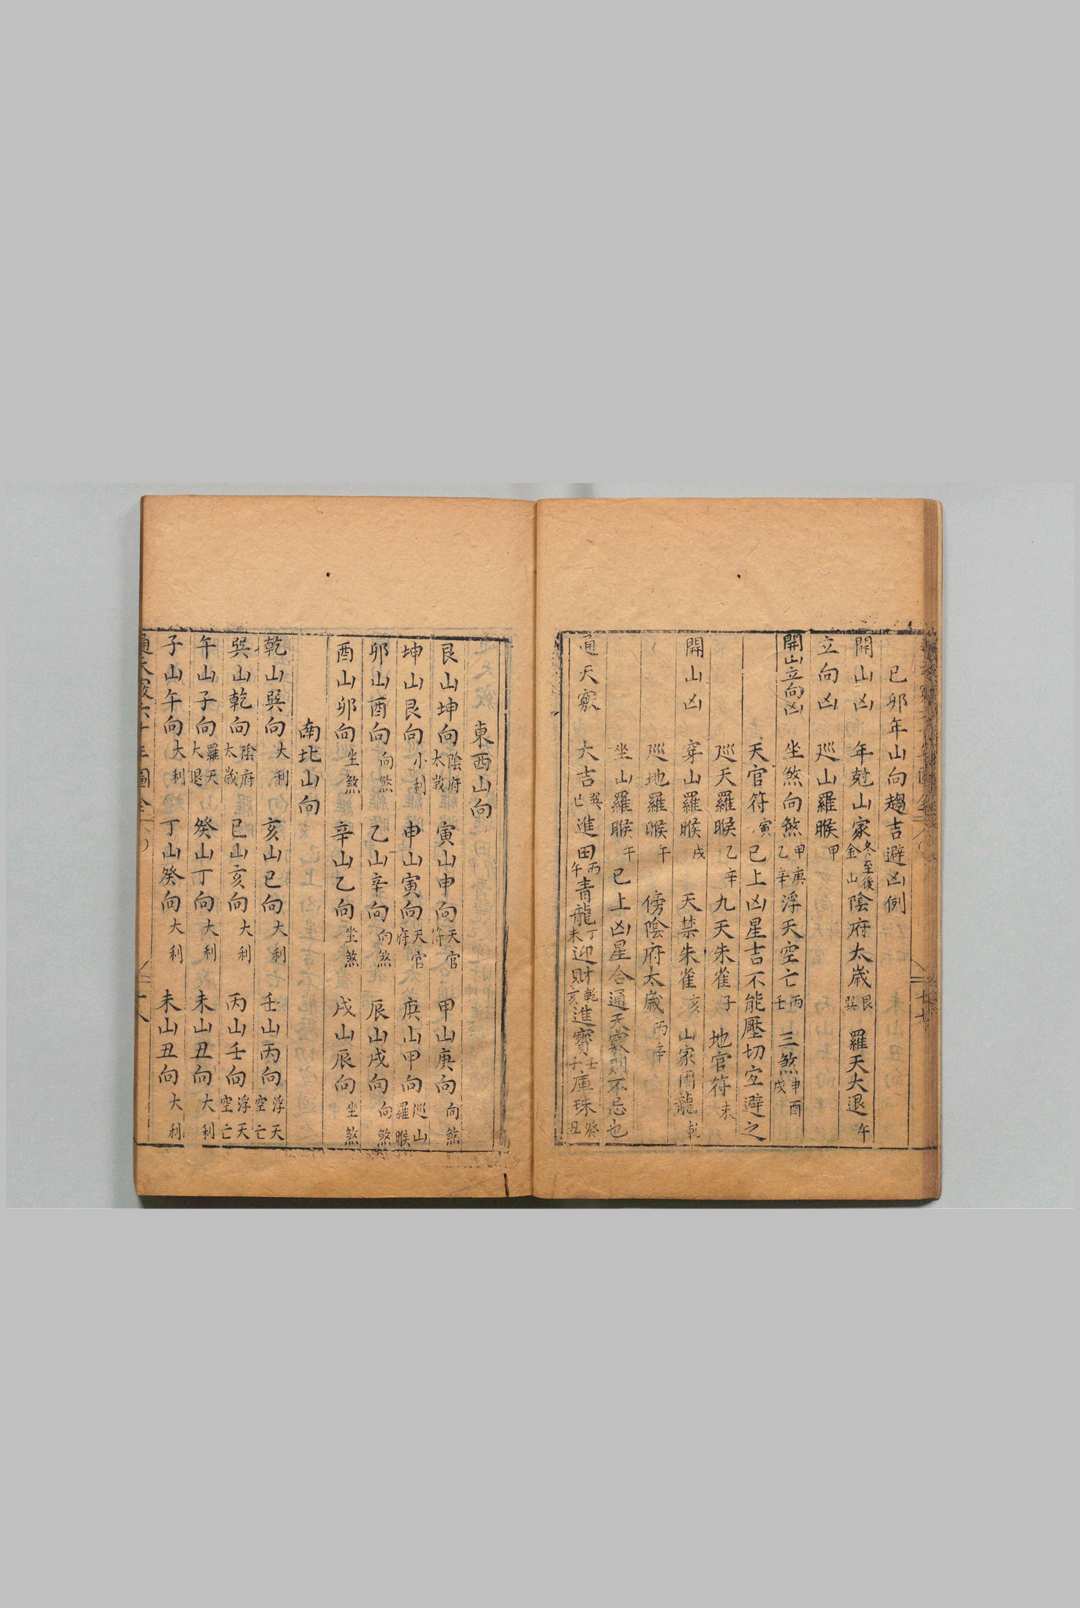 己卯年山向趨吉避凶例
開山凶 年尅山家冬至後金山陰府太歲艮巽 羅天大退午
立向凶 巡山羅睺甲
開山立向凶 坐煞向煞甲庚乙辛浮天空亡丙壬 三煞申酉戌
天官符寅已上凶星吉不能壓切宜避之
巡天羅睺乙辛九天朱雀子 地官符未
開山凶 穿山羅睺戌 天禁朱雀亥 山家困龍乾
巡地羅睺午 傍陰府太歲丙辛
坐山羅睺午已上凶星合通天竅則不忌也
通天竅 大吉巽巳進田丙午青龍丁未迎財乾亥進寶壬子庫珠癸丑
東西山向
艮山坤向陰府太歲 寅山申向天官符 甲山庚向向煞
坤山艮向小利 申山寅向天官符 庚山甲向巡山羅睺
卯山酉向向煞 乙山辛向向煞 辰山戌向向煞
酉山卯向坐煞 辛山乙向坐煞 戌山辰向坐煞
南北山向
乾山巽向大利 亥山巳向大利 壬山丙向浮天空亡
巽山乾向陰府太歲 巳山亥向大利 丙山壬向浮天空亡
午山子向羅天大退 癸山丁向大利 未山丑向大利
子山午向大利 丁山癸向大利 未山丑向大利